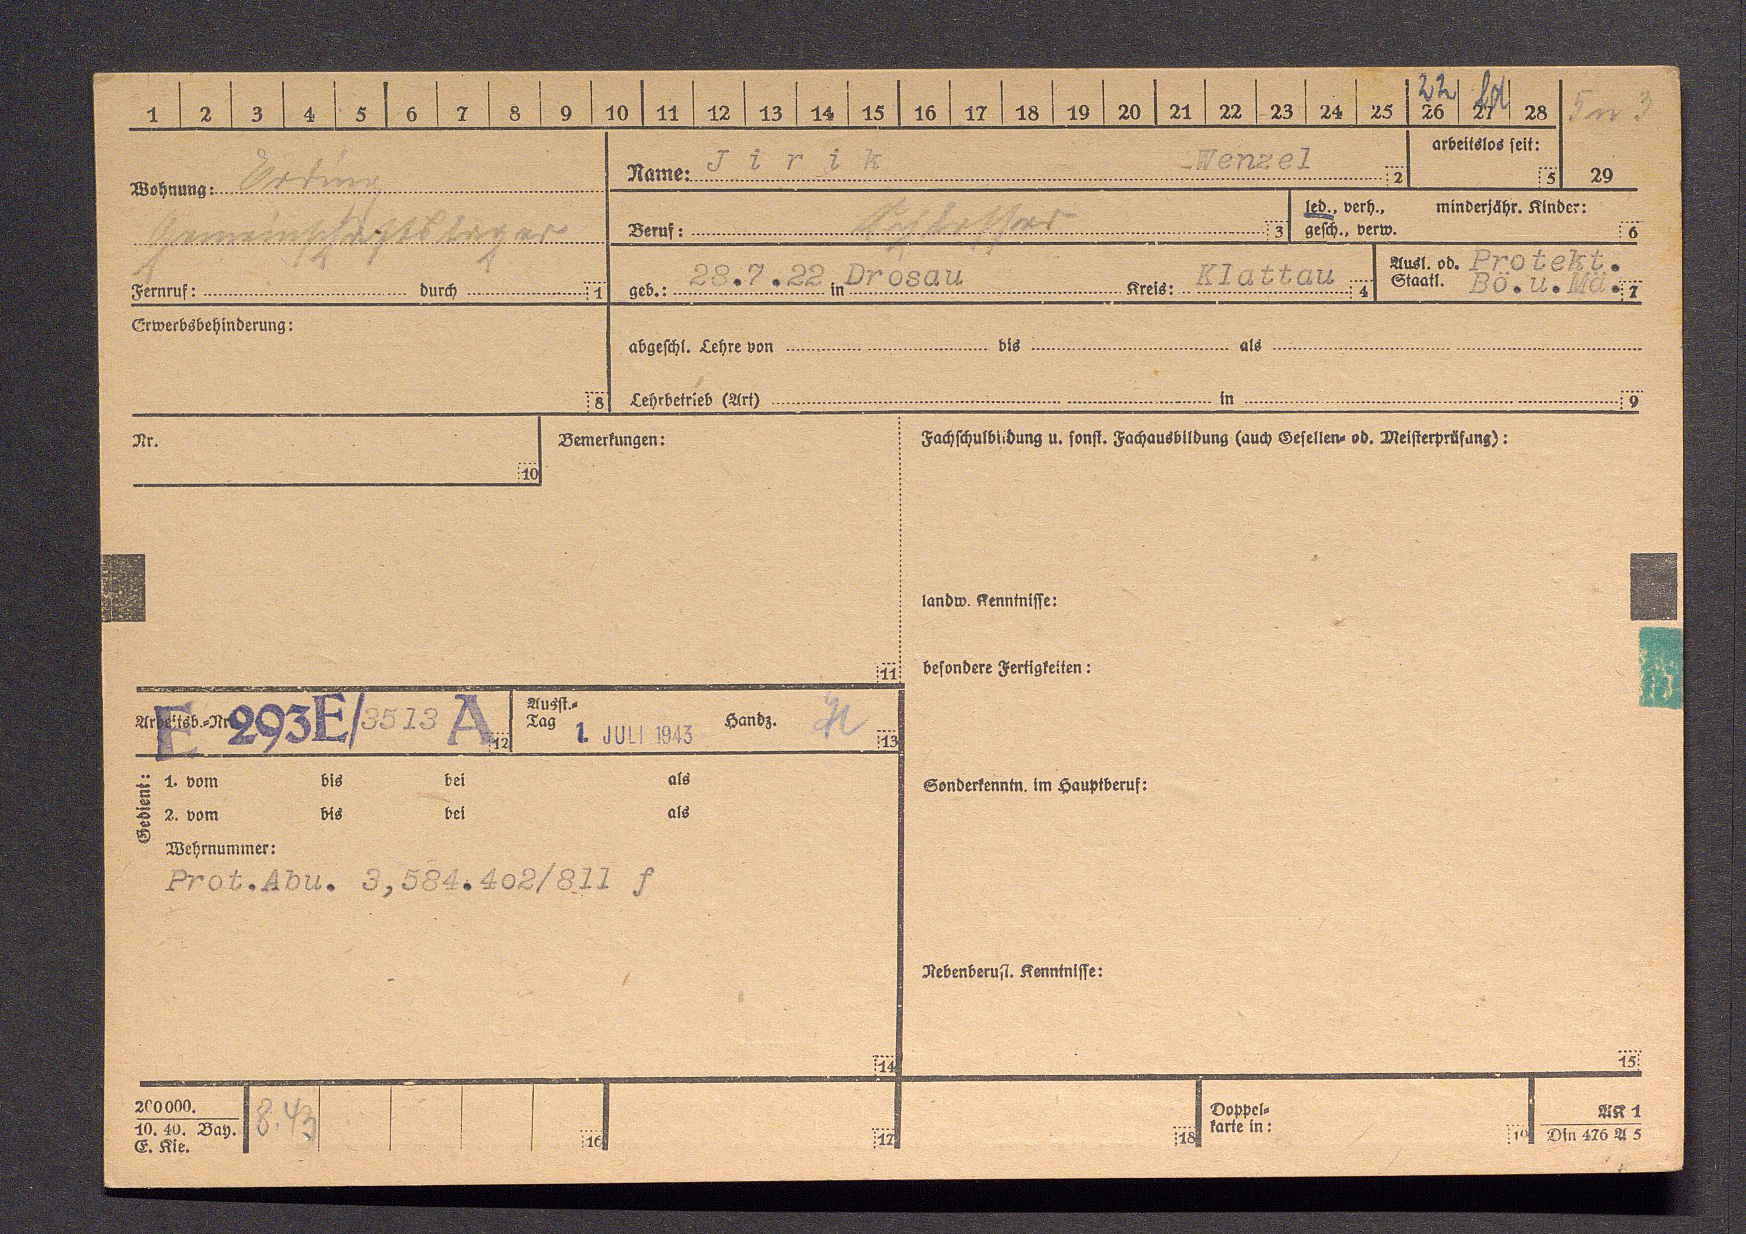 1 2 3 4 5 6 7 8 9 10 11 12 13 14 15 16 17 18 19 20 21 22 23 24 25 26 27 28
22
Wohnung: Erding
Gemeinschaftslager
Fernruf: durch 1
Name: Jirik Wenzel 2
arbeitslos seit: 5
29
Beruf: Schlosser 3
led., verh., minderjähr. Kinder:
gesch., verw. 6
geb.: 28.7.22 in Drosau Kreis: Klattau 4
Ausl. od. Staatl. Protekt.
Bö.u.Mä. 7
Erwerbsbehinderung:
8
abgeschl. Lehre von bis als
Lehrbetrieb (Art) in 9
Nr.
10
Bemerkungen:
11
Fachschulbildung u. sonst. Fachausbildung (auch Gesellen- od. Meisterprüfung):
landw. Kenntnisse:
besondere Fertigkeiten:
Arbeitsb.-Nr. E 293E/3513 A 12
Ausst.-Tag 1. JULI 1943 Handz. 13
Sonderkenntn. im Hauptberuf:
Gedient:
1. vom bis bei als
2. vom bis bei als
Wehrnummer:
Prot.Abu. 3,584.402/811 f
14
Nebenberufl. Kenntnisse:
15
200000.
10. 40. Bay.
E. Kie.
8.43
16
17
18
Doppel-
karte in:
19
AK 1
Din 476 A 5